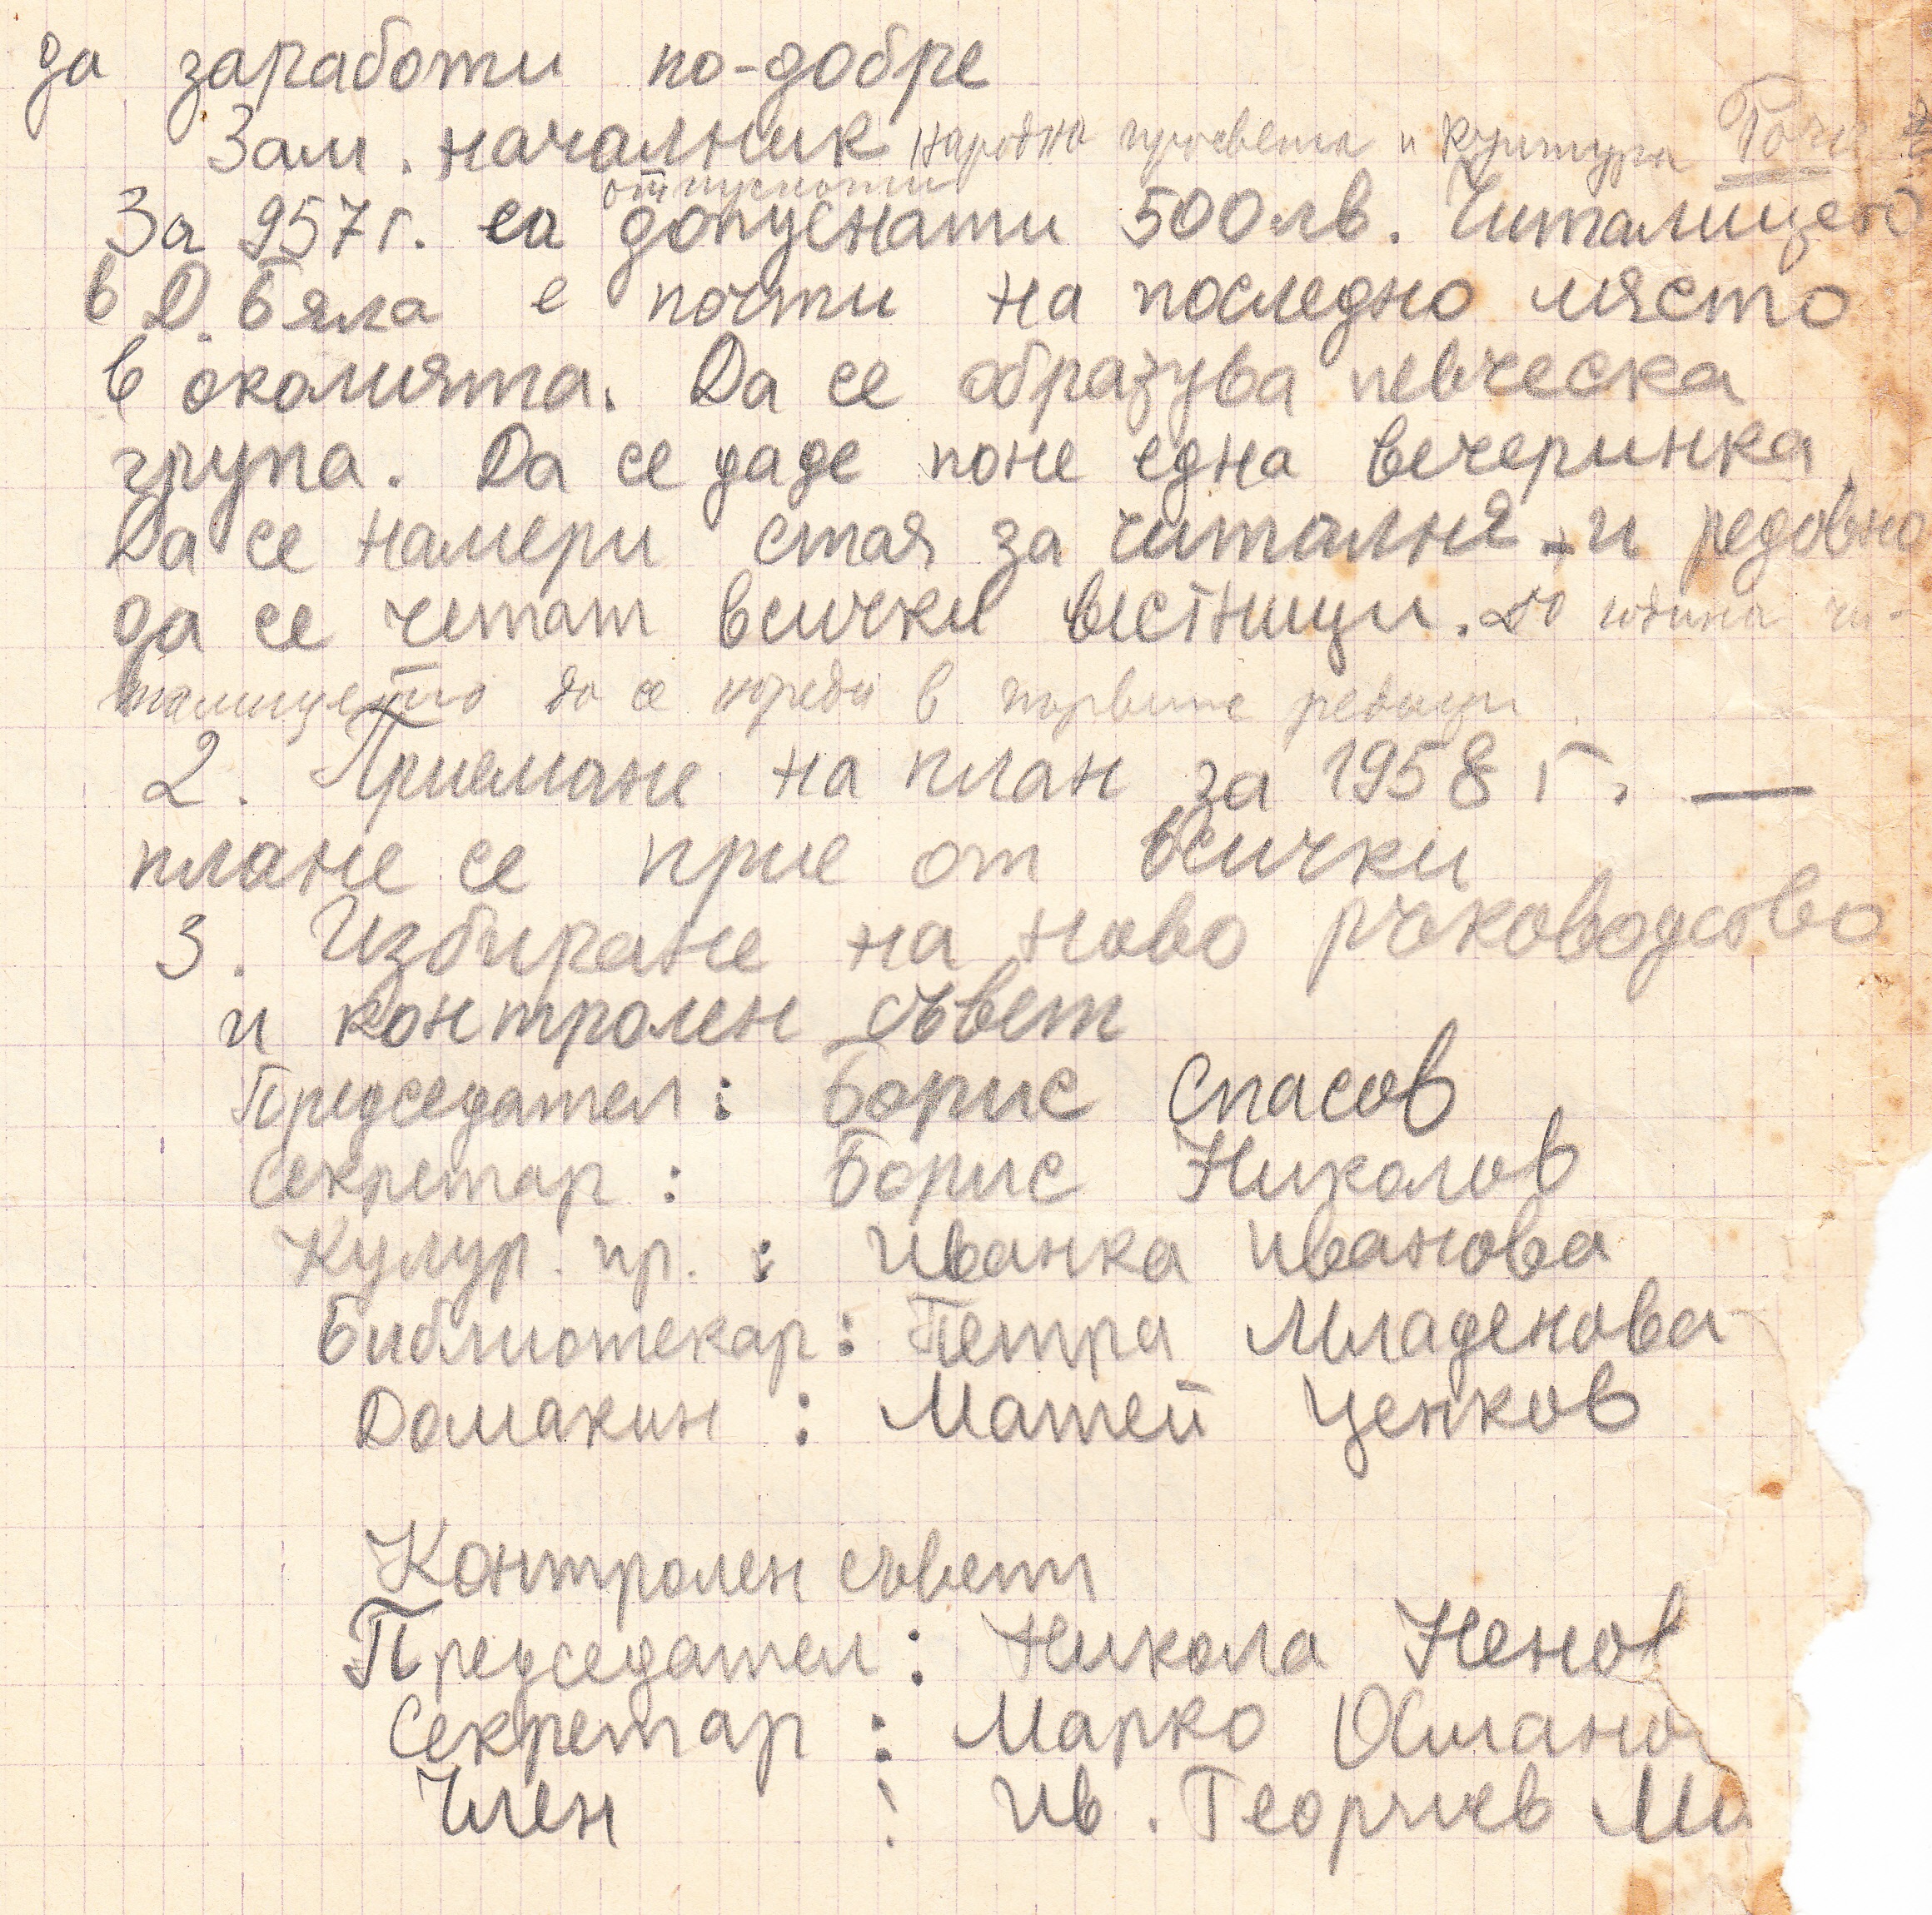 да заработи по-добре
Зам. началник народна просвета и култура
отпуснати
За 957 г. са допуснати 500 лв. Читалището
в Д. Бяла е почти на последно място
в околията. Да се образува певческа
група. Да се даде поне една вечеринка,
Да се намери стая за читалня и редовно
да се четат всички вестници. До година чи-
талището да се нареди в първите редици.
2. Приемане на план за 1958 г. —
плане се прие от всички
3. Избиране на ново ръководство
и контролен съвет
Председател: Борис Спасов
Секретар: Борис Николов
Кулур. пр.: Иванка Иванова
Библиотекар: Петра Младенова
Домакин: Матей Ценков
Контролен съвет
Председател: Никола Ненов
Секретар: Марко
Член: Ив. Георгиев